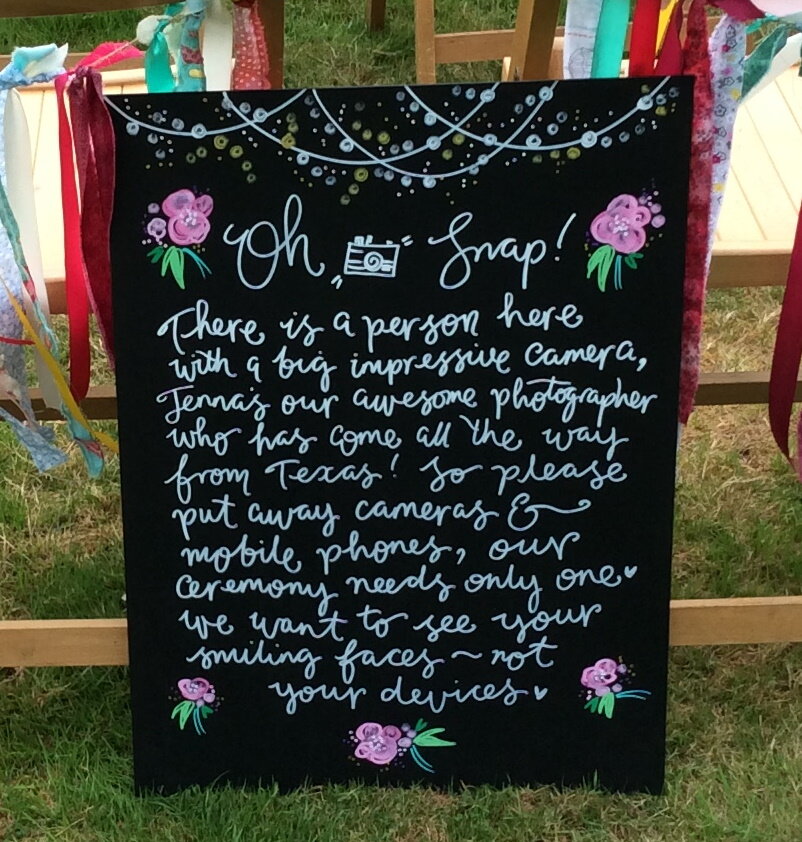 Oh, Snap!
There is a person here
with a big impressive camera,
Jenna's our awesome photographer
who has come all the way
from Texas! So please
put away cameras &
mobile phones, our
ceremony needs only one♥
we want to see your
smiling faces ~ not
your devices♥